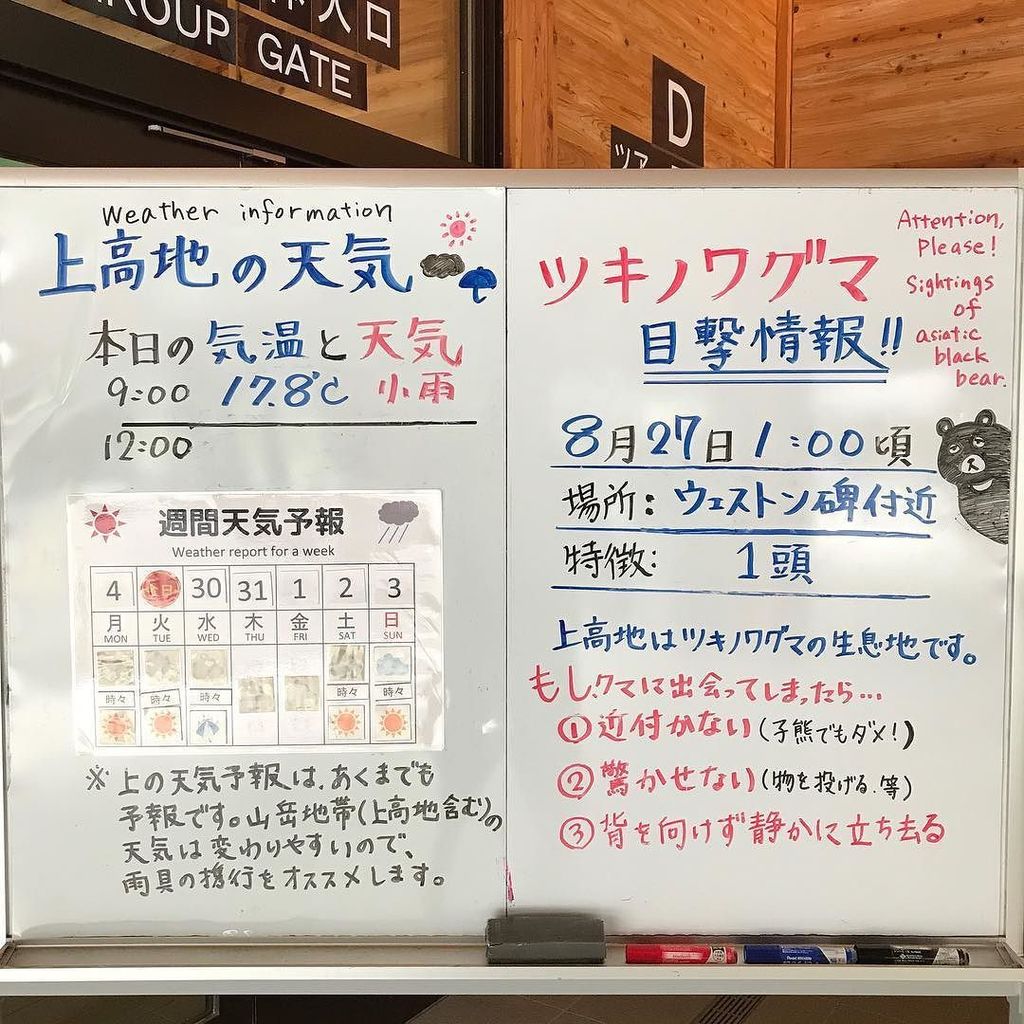 GROUP
GATE
体入口
D
ツア
Weather information
上高地の天気
本日の気温と天気
9:00 17.8℃ 小雨
12:00
週間天気予報
Weather report for a week
4 30 31 1 2 3
月 火 水 木 金 土 日
MON TUE WED THU FRI SAT SUN
時々 時々 時々 時々 時々
※上の天気予報は、あくまでも
予報です。山岳地帯(上高地含む)の
天気は変わりやすいので、
雨具の携行をオススメします。
Attention,
Please!
Sightings
of
asiatic
black
bear.
ツキノワグマ
目撃情報!!
8月27日 1:00頃
場所: ウェストン碑付近
特徴: 1頭
上高地はツキノワグマの生息地です。
もし、クマに出会ってしまったら…
①近付かない(子熊でもダメ!)
②驚かせない(物を投げる、等)
③背を向けず静かに立ち去る